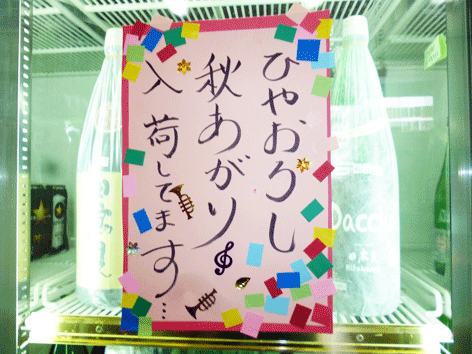 ひやおろし
秋あがり
入荷してます…
Dacc